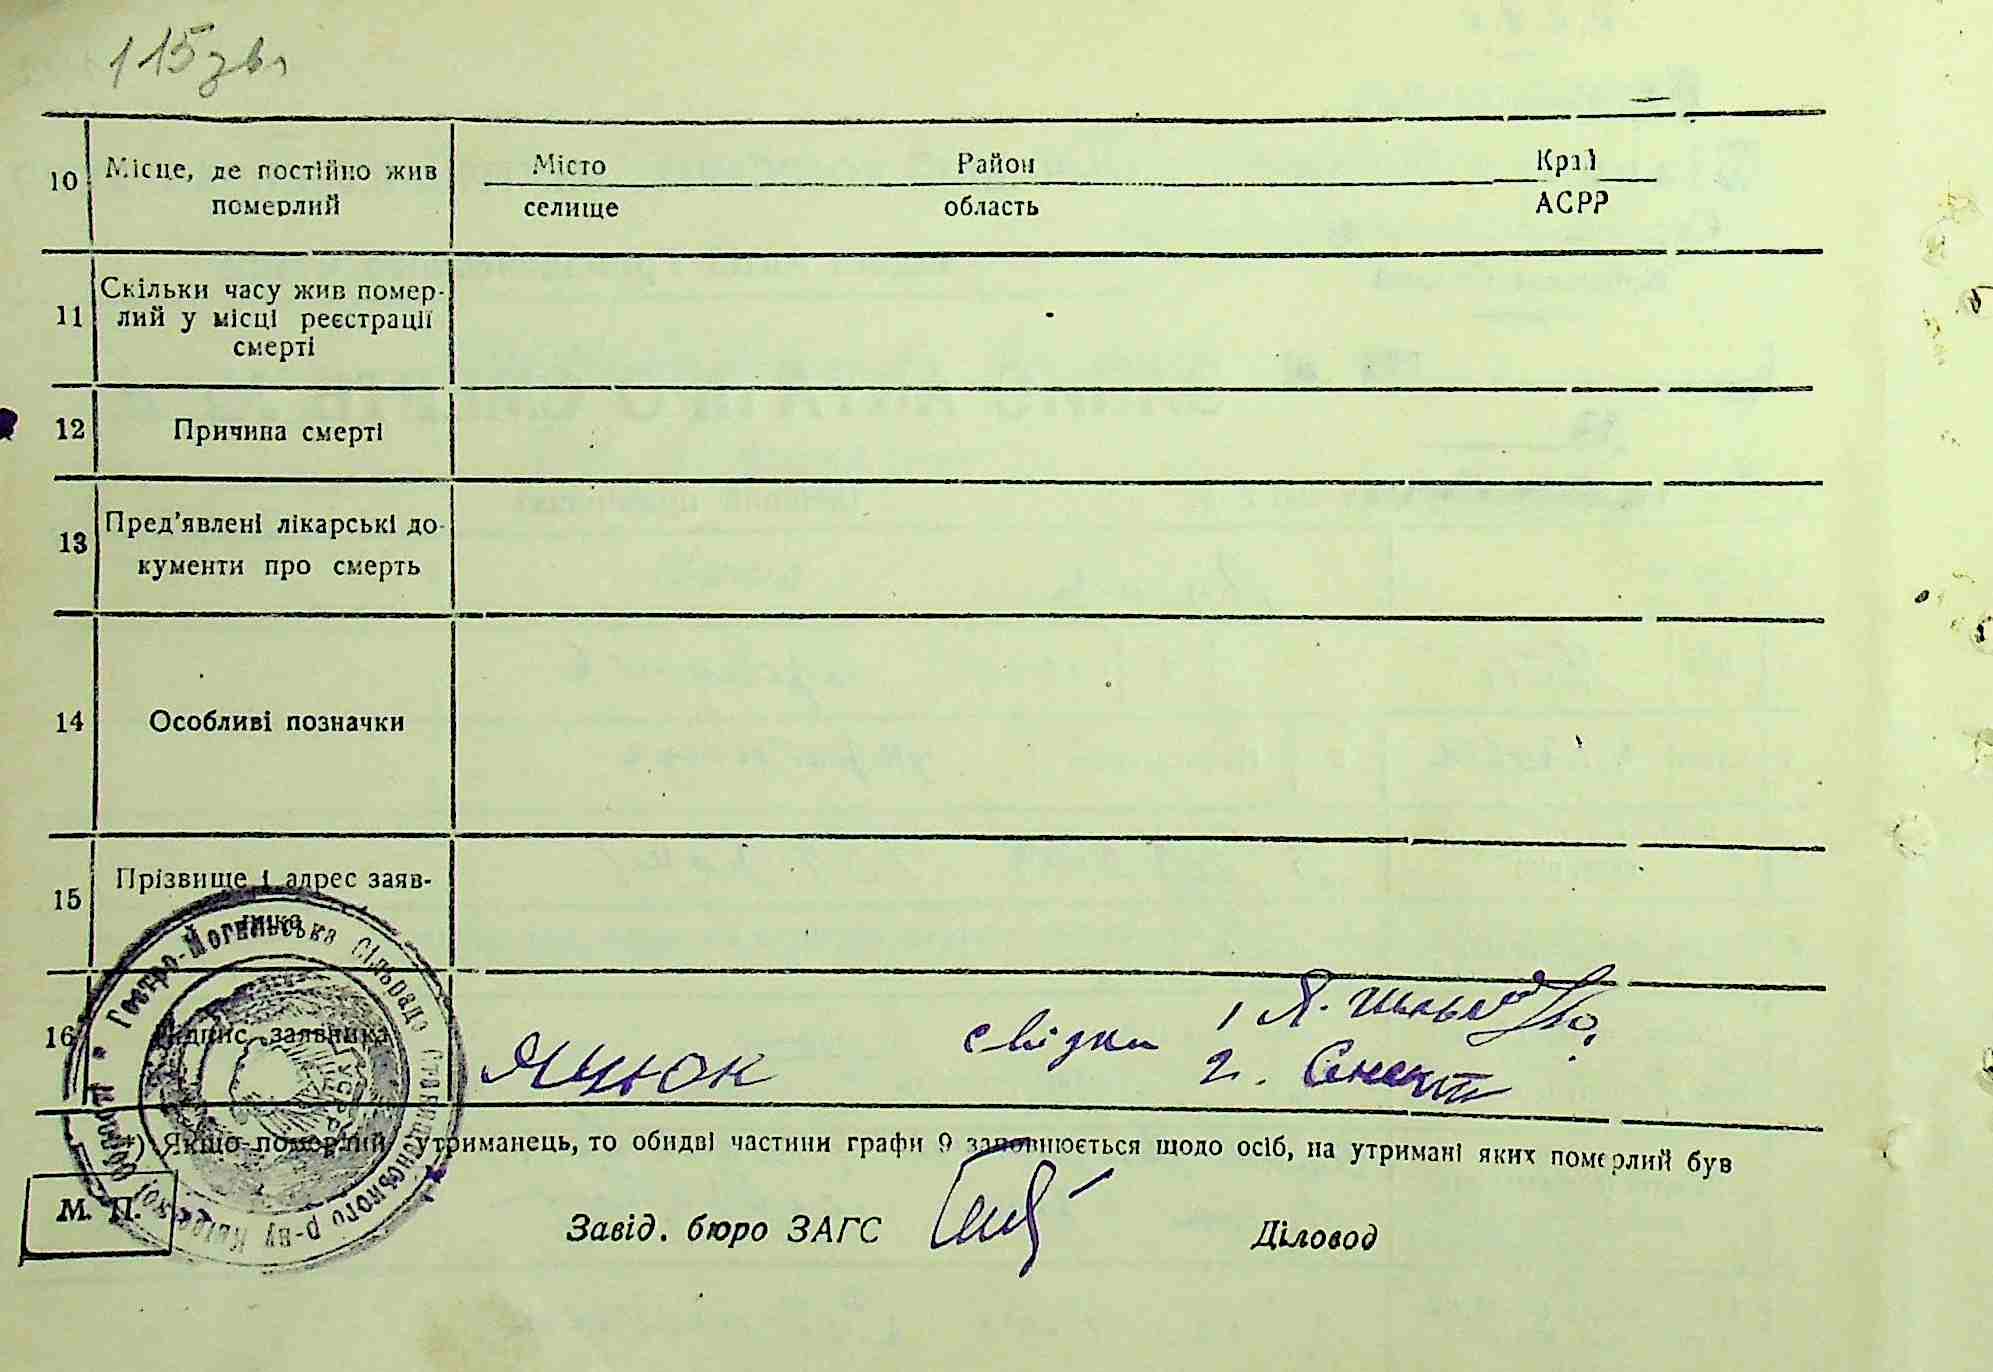 115 зв.
10 Місце, де постійно жив померлий
Місто Район Край
селище область АСРР
11 Скільки часу жив помер-
лий у місці реєстрації
смерті
12 Причина смерті
13 Пред'явлені лікарські до-
кументи про смерть
14 Особливі позначки
15 Прізвище і адрес заяв-
ника
16 Підпис заявника Яцюк свідки 1 Я.
2.
Гостро-Могильська сільрада Ставищенського р-ну Київської области
УСРР
*) Якщо померлий утриманець, то обидві частини графи 9 заповнюється щодо осіб, на утримані яких померлий був
М. П.
Завід. бюро ЗАГС Діловод